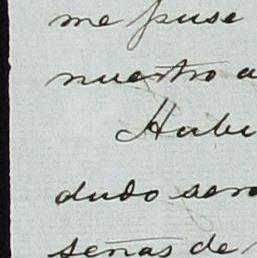 me puse
nuestro a
Habi
dudo sera
señas de